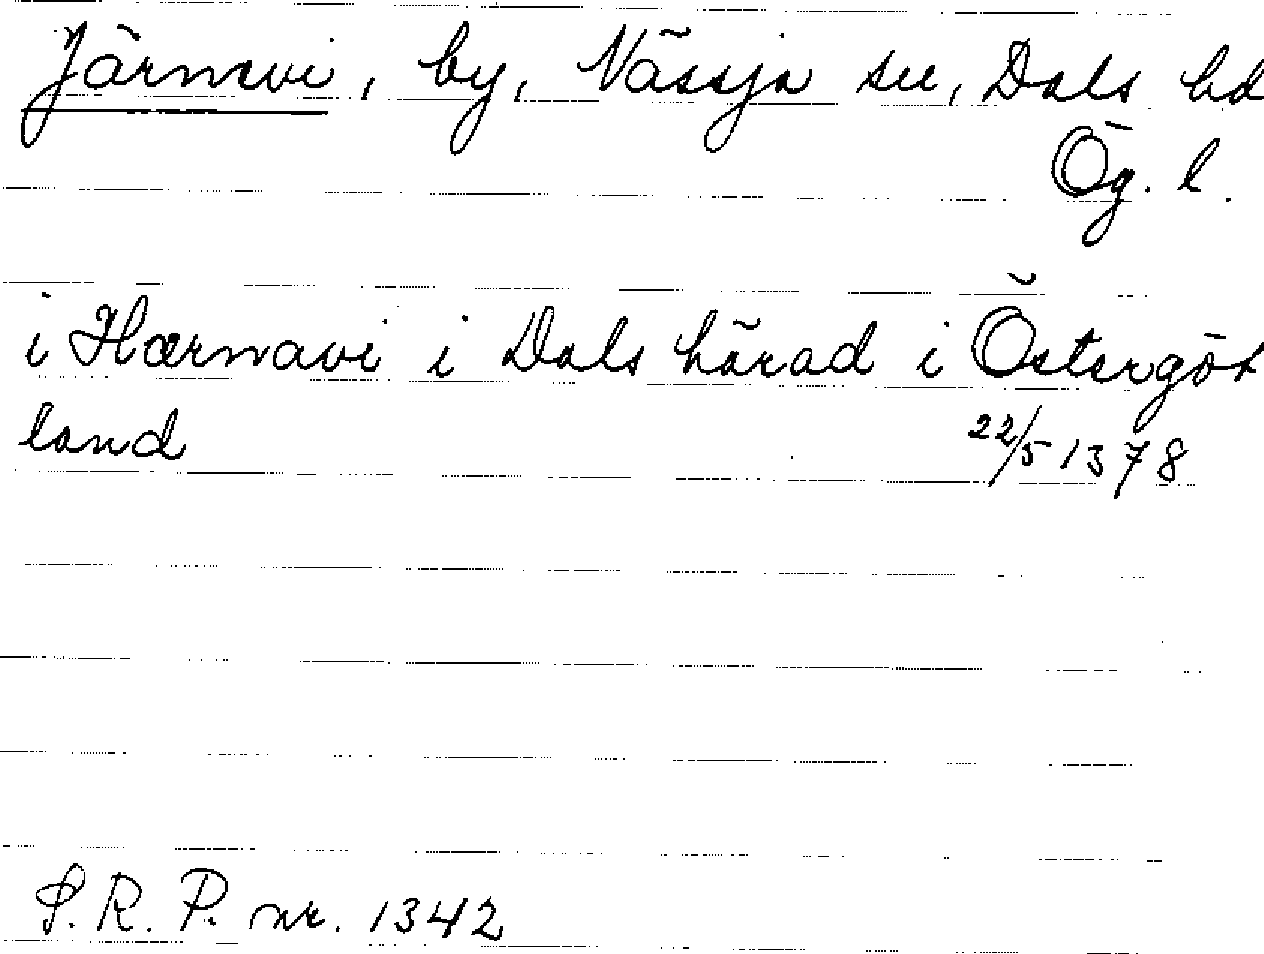 Järnevi, by, Nässja sn, Dals hd
Ög. l.
i Hærnavi i Dals härad i Östergöt
land 22/5 1378
S. R. P. nr. 1342